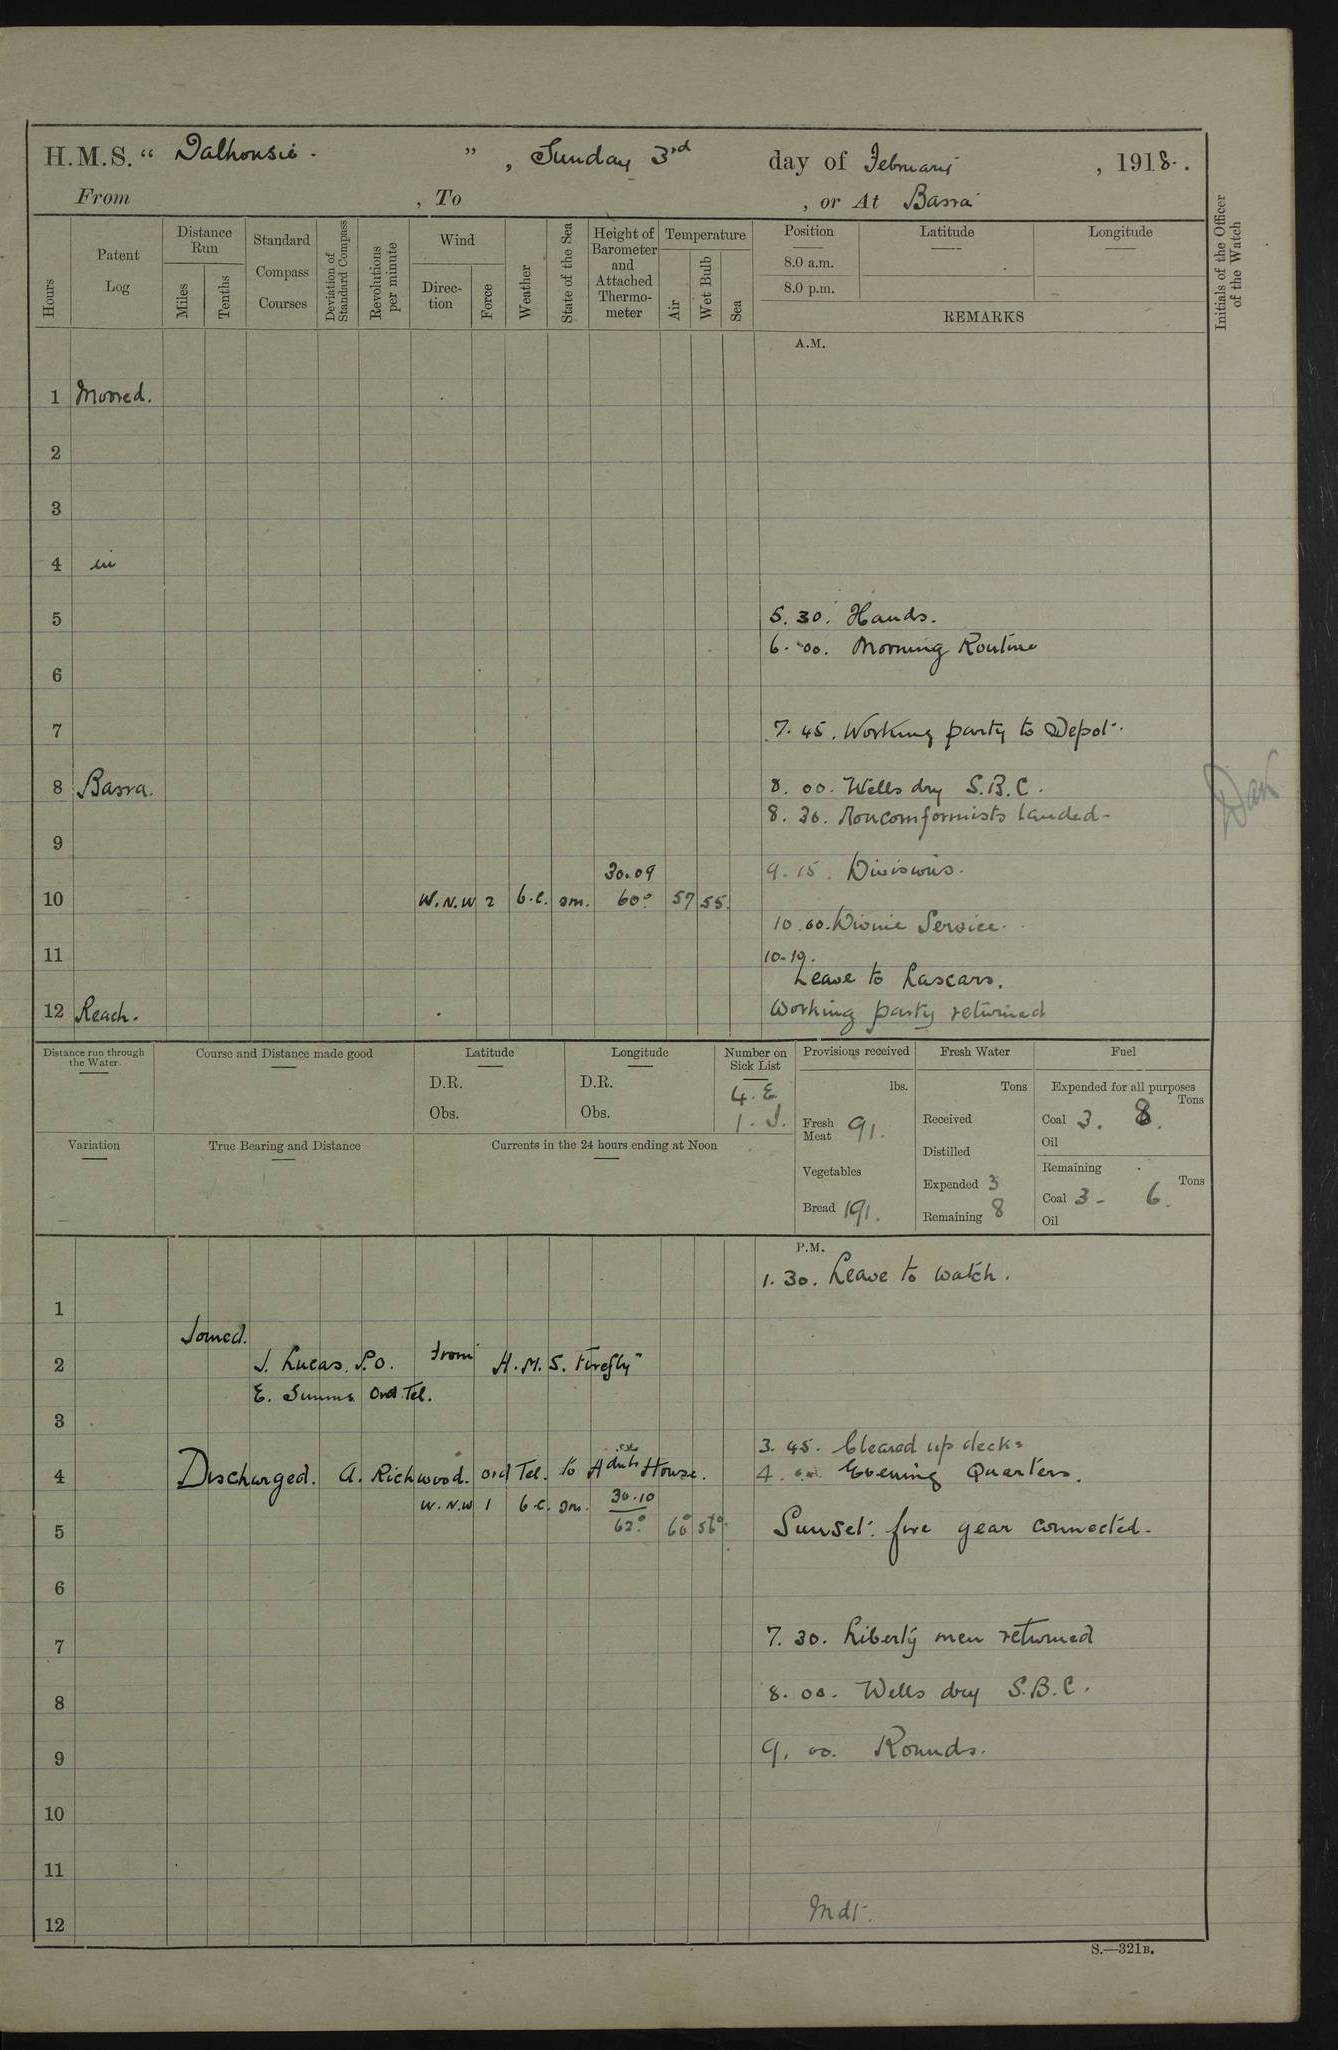 H.M.S. “ Dalhousie. ” , Sunday 3rd day of February , 1918.
From , To , or At Basra
Hours
Patent Log
Distance Run
Miles
Tenths
Standard Compass Courses
Deviation of Standard Compass
Revolutions per minute
Wind
Direction
Force
Weather
State of the Sea
Height of Barometer and Attached Thermometer
Temperature
Air
Wet Bulb
Sea
Position
8.0 a.m.
8.0 p.m.
Latitude
Longitude
REMARKS
Initials of the Officer of the Watch
A.M.
1 Moored.
2
3
4 in
5 5.30. Hands.
6.00. Morning Routine
6
7 7.45. Working party to Depot.
8 Basra. 8.00. Wells dry S.B.C.
8.30. Noncomformists landed.
9
30.09 9.15. Divisions.
10 W.N.W 2 b.c. sm. 60° 57 55.
10.00. Divine Service.
11 10.19.
Leave to Lascars.
12 Reach. Working party returned
Distance run through the Water.
Course and Distance made good
Latitude
D.R.
Obs.
Longitude
D.R.
Obs.
Number on Sick List
4. E
1. I.
Provisions received
lbs.
Fresh Meat 91.
Vegetables
Bread 191.
Fresh Water
Tons
Received
Distilled
Expended 3
Remaining 8
Fuel
Expended for all purposes
Tons
Coal 3. 8.
Oil
Remaining
Tons
Coal 3 - 6.
Oil
Variation
True Bearing and Distance
Currents in the 24 hours ending at Noon
P.M.
1.30. Leave to watch.
1
Joined.
2 J. Lucas. P.O. from H.M.S. Firefly"
E. Simms Ord Tel.
3
3.45. Cleared up decks
4 Discharged. A. Richwood. Ord Tel. to House. 4.00. Evening Quarters.
W.N.W 1 b.c. sm. 30.10
5 62° 60° 56° Sunset. fire gear connected.
6
7 7.30. Liberty men returned
8 8.00. Wells dry S.B.C.
9 9.00. Rounds.
10
11
12 Mdt.
S.—321B.